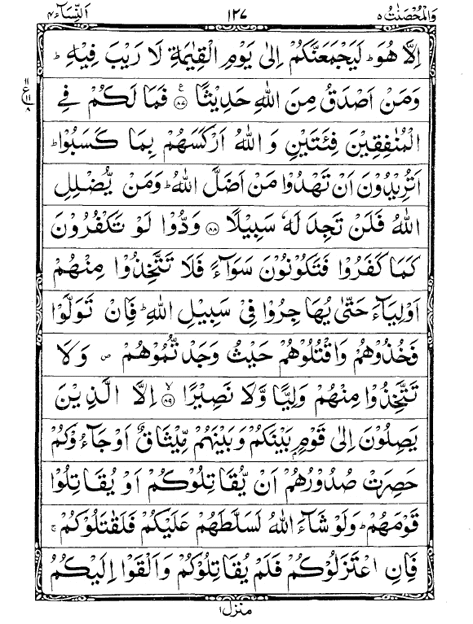 وَالْمُحْصَنٰتُ ۵ ۱۲۷ اَلنِّسَآء ۴
اِلَّا هُوَ ؕ لَيَجْمَعَنَّكُمْ اِلٰى يَوْمِ الْقِيٰمَةِ لَا رَيْبَ فِيْهِ ؕ
وَمَنْ اَصْدَقُ مِنَ اللّٰهِ حَدِيْثًا ۝۸۷ فَمَا لَكُمْ فِى
الْمُنٰفِقِيْنَ فِئَتَيْنِ وَ اللّٰهُ اَرْكَسَهُمْ بِمَا كَسَبُوْا ؕ
اَتُرِيْدُوْنَ اَنْ تَهْدُوْا مَنْ اَضَلَّ اللّٰهُ ؕ وَمَنْ يُّضْلِلِ
اللّٰهُ فَلَنْ تَجِدَ لَهٗ سَبِيْلًا ۝۸۸ وَدُّوْا لَوْ تَكْفُرُوْنَ
كَمَا كَفَرُوْا فَتَكُوْنُوْنَ سَوَآءً فَلَا تَتَّخِذُوْا مِنْهُمْ
اَوْلِيَآءَ حَتّٰى يُهَاجِرُوْا فِىْ سَبِيْلِ اللّٰهِ ؕ فَاِنْ تَوَلَّوْا
فَخُذُوْهُمْ وَاقْتُلُوْهُمْ حَيْثُ وَجَدْتُّمُوْهُمْ ۪ وَلَا
تَتَّخِذُوْا مِنْهُمْ وَلِيًّا وَّلَا نَصِيْرًا ۝۸۹ اِلَّا الَّذِيْنَ
يَصِلُوْنَ اِلٰى قَوْمٍۭ بَيْنَكُمْ وَبَيْنَهُمْ مِّيْثَاقٌ اَوْ جَآءُوْكُمْ
حَصِرَتْ صُدُوْرُهُمْ اَنْ يُّقَاتِلُوْكُمْ اَوْ يُقَاتِلُوْا
قَوْمَهُمْ ؕ وَلَوْ شَآءَ اللّٰهُ لَسَلَّطَهُمْ عَلَيْكُمْ فَلَقٰتَلُوْكُمْ ۚ
فَاِنِ اعْتَزَلُوْكُمْ فَلَمْ يُقَاتِلُوْكُمْ وَاَلْقَوْا اِلَيْكُمُ
منزل ۱
۱۱
ع ۱۱
۸